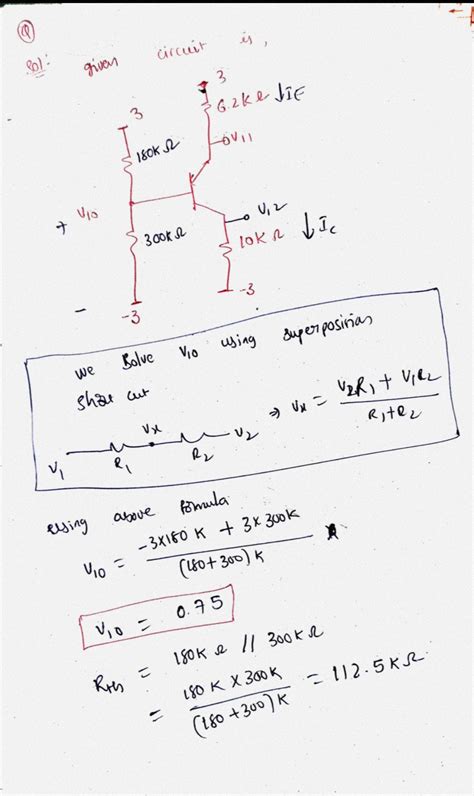 Q
Sol: given circuit is,
3
6.2KΩ ↓IE
3
V11
180KΩ
+ V10
V12
300KΩ
10KΩ ↓Ic
-
-3
-3
we solve V10 using superposition
short cut
V1 R1 Vx R2 V2 ⇒ Vx = (V2R1 + V1R2) / (R1+R2)
using above formula
V10 = (-3×180K + 3×300K) / (180+300)K
V10 = 0.75
Rth = 180KΩ // 300KΩ
= (180K × 300K) / (180+300)K = 112.5KΩ